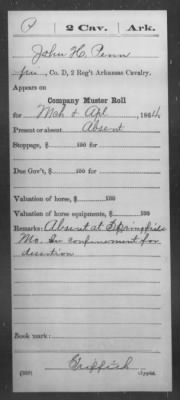 P 2 Cav. Ark.
John H. Penn
, Co. D, 2 Reg't Arkansas Cavalry.
Appears on
Company Muster Roll
for Mch & Apl, 1864.
Present or absent Absent
Stoppage, $ 100 for
Due Gov't, $ 100 for
Valuation of horse, $ 100
Valuation of horse equipments, $ 100
Remarks: Absent at Springfield
Mo. In confinement for
desertion
Book mark:
(359) Copyist.